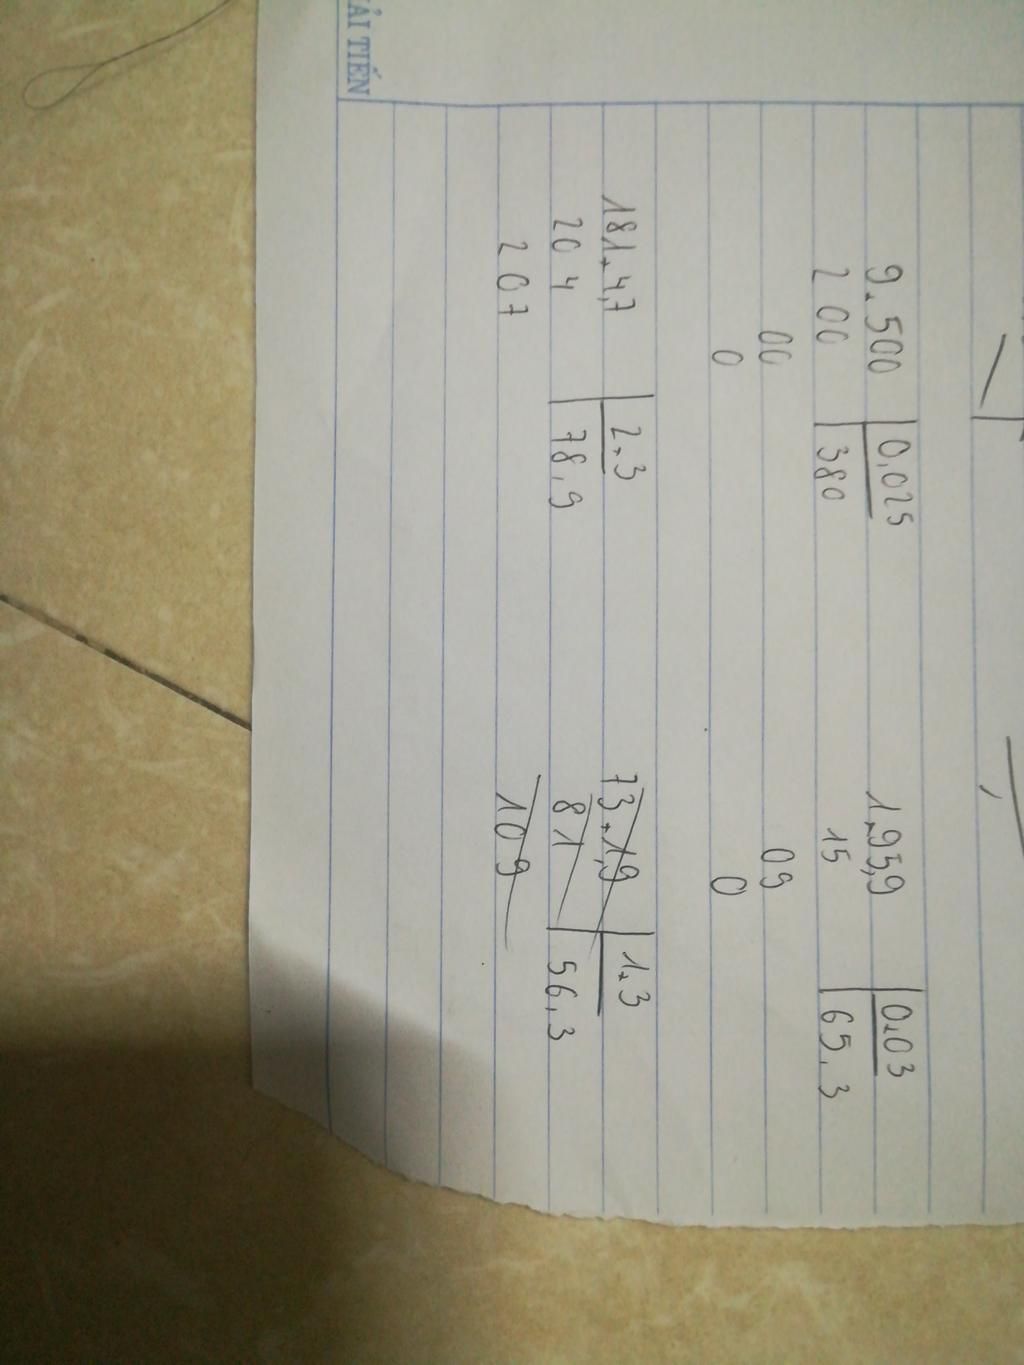 9.500 0,025
200 380
00
0
1.95,9 0.03
15 65,3
09
0
181.4,7 2.3
204 78,9
207
73.1,9 1.3
81 56,3
109
ẢI TIẾN